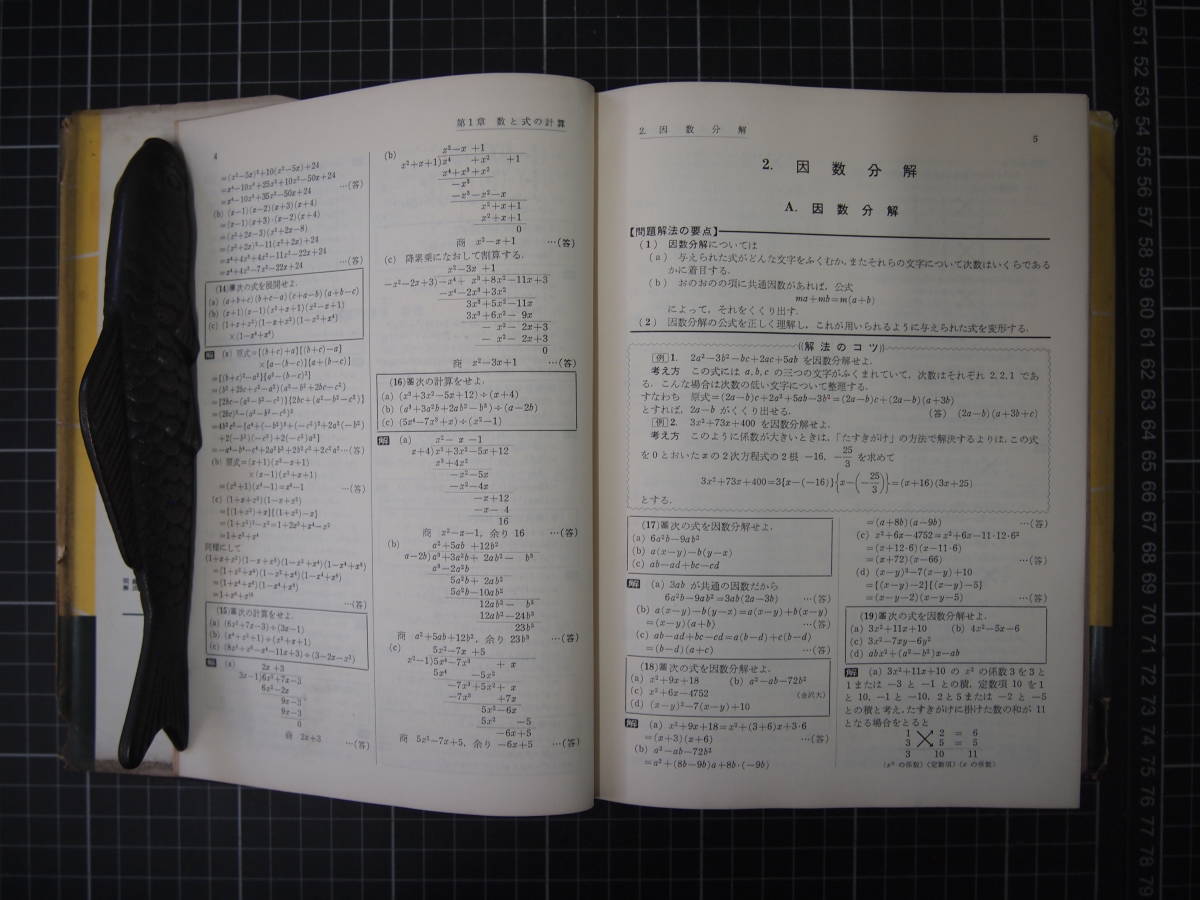 第1章 数と式の計算
4
=(x²−5x)²+10(x²−5x)+24
=x⁴−10x³+25x²+10x²−50x+24
=x⁴−10x³+35x²−50x+24 …(答)
(b) (x−1)(x−2)(x+3)(x+4)
=(x−1)(x+3)·(x−2)(x+4)
=(x²+2x−3)(x²+2x−8)
=(x²+2x)²−11(x²+2x)+24
=x⁴+4x³+4x²−11x²−22x+24
=x⁴+4x³−7x²−22x+24 …(答)
(14) 次の式を展開せよ.
(a) (a+b+c)(b+c−a)(c+a−b)(a+b−c)
(b) (x+1)(x−1)(x²+x+1)(x²−x+1)
(c) (1+x+x²)(1−x+x²)(1−x²+x⁴)
×(1−x⁴+x⁸)
解 (a) 原式={(b+c)+a}{(b+c)−a}
×{a−(b−c)}{a+(b−c)}
={(b+c)²−a²}{a²−(b−c)²}
=(b²+2bc+c²−a²)(a²−b²+2bc−c²)
={2bc−(a²−b²−c²)}{2bc+(a²−b²−c²)}
=(2bc)²−(a²−b²−c²)²
=4b²c²−{a⁴+(−b²)²+(−c²)²+2a²(−b²)
+2(−b²)(−c²)+2(−c²)a²}
=−a⁴−b⁴−c⁴+2a²b²+2b²c²+2c²a² …(答)
(b) 原式=(x+1)(x²−x+1)
×(x−1)(x²+x+1)
=(x³+1)(x³−1)=x⁶−1 …(答)
(c) (1+x+x²)(1−x+x²)
={(1+x²)+x}{(1+x²)−x}
=(1+x²)²−x²=1+2x²+x⁴−x²
=1+x²+x⁴
同様にして
(1+x+x²)(1−x+x²)(1−x²+x⁴)(1−x⁴+x⁸)
=(1+x²+x⁴)(1−x²+x⁴)(1−x⁴+x⁸)
=(1+x⁴+x⁸)(1−x⁴+x⁸)
=1+x⁸+x¹⁶ …(答)
(15) 次の計算をせよ.
(a) (6x²+7x−3)÷(3x−1)
(b) (x⁴+x²+1)÷(x²+x+1)
(c) (8x²+x³−x⁴−11x+3)÷(3−2x−x²)
解 (a)
2x+3
3x−1)6x²+7x−3
6x²−2x
9x−3
9x−3
0
商 2x+3 …(答)
(b)
x²−x+1
x²+x+1)x⁴ +x² +1
x⁴+x³+x²
−x³
−x³−x²−x
x²+x+1
x²+x+1
0
商 x²−x+1 …(答)
(c) 降冪乗になおして割算する.
x²−3x+1
−x²−2x+3)−x⁴+x³+8x²−11x+3
−x⁴−2x³+3x²
3x³+5x²−11x
3x³+6x²−9x
−x²−2x+3
−x²−2x+3
0
商 x²−3x+1 …(答)
(16) 次の計算をせよ.
(a) (x³+3x²−5x+12)÷(x+4)
(b) (a³+3a²b+2ab²−b³)÷(a−2b)
(c) (5x⁴−7x³+x)÷(x²−1)
解 (a)
x²−x−1
x+4)x³+3x²−5x+12
x³+4x²
−x²−5x
−x²−4x
−x+12
−x−4
16
商 x²−x−1, 余り 16 …(答)
(b)
a²+5ab+12b²
a−2b)a³+3a²b+2ab²−b³
a³−2a²b
5a²b+2ab²
5a²b−10ab²
12ab²−b³
12ab²−24b³
23b³
商 a²+5ab+12b², 余り 23b³ …(答)
(c)
5x²−7x+5
x²−1)5x⁴−7x³ +x
5x⁴ −5x²
−7x³+5x²+x
−7x³ +7x
5x²−6x
5x² −5
−6x+5
商 5x²−7x+5, 余り −6x+5 …(答)
2. 因数分解
5
2. 因数分解
A. 因数分解
【問題解法の要点】
(1) 因数分解については
(a) 与えられた式がどんな文字をふくむか,またそれらの文字について次数はいくらである
かに着目する.
(b) おのおのの項に共通因数があれば, 公式
ma+mb=m(a+b)
によって, それをくくり出す.
(2) 因数分解の公式を正しく理解し, これが用いられるように与えられた式を変形する.
((解法のコツ))
[例]1. 2a²−3b²−bc+2ac+5ab を因数分解せよ.
考え方 この式には a,b,c の三つの文字がふくまれていて, 次数はそれぞれ 2,2,1 であ
る. こんな場合は次数の低い文字について整理する.
すなわち 原式=(2a−b)c+2a²+5ab−3b²=(2a−b)c+(2a−b)(a+3b)
とすれば, 2a−b がくくり出せる. (答) (2a−b)(a+3b+c)
[例]2. 3x²+73x+400 を因数分解せよ.
考え方 このように係数が大きいときは,「たすきがけ」の方法で解決するよりは, この式
を0とおいたxの2次方程式の2根 −16, −25/3 を求めて
3x²+73x+400=3{x−(−16)}{x−(−25/3)}=(x+16)(3x+25)
とする.
(17) 次の式を因数分解せよ.
(a) 6a²b−9ab²
(b) a(x−y)−b(y−x)
(c) ab−ad+bc−cd
解 (a) 3ab が共通の因数だから
6a²b−9ab²=3ab(2a−3b) …(答)
(b) a(x−y)−b(y−x)=a(x−y)+b(x−y)
=(x−y)(a+b) …(答)
(c) ab−ad+bc−cd=a(b−d)+c(b−d)
=(b−d)(a+c) …(答)
(18) 次の式を因数分解せよ.
(a) x²+9x+18 (b) a²−ab−72b²
(c) x²+6x−4752 (金沢大)
(d) (x−y)²−7(x−y)+10
解 (a) x²+9x+18=x²+(3+6)x+3·6
=(x+3)(x+6) …(答)
(b) a²−ab−72b²
=a²+(8b−9b)a+8b·(−9b)
=(a+8b)(a−9b) …(答)
(c) x²+6x−4752=x²+6x−11·12·6²
=(x+12·6)(x−11·6)
=(x+72)(x−66) …(答)
(d) (x−y)²−7(x−y)+10
={(x−y)−2}{(x−y)−5}
=(x−y−2)(x−y−5) …(答)
(19) 次の式を因数分解せよ.
(a) 3x²+11x+10 (b) 4x²−5x−6
(c) 3x²−7xy−6y²
(d) abx²+(a²−b²)x−ab
解 (a) 3x²+11x+10 の x² の係数3を3と
1または −3 と −1 との積, 定数項 10 を1
と 10, −1 と −10, 2と5または −2 と −5
との積と考え, たすきがけに掛けた数の和が 11
となる場合をとると
1 2 = 6
3 5 = 5
3 10 11
(x² の係数)(定数項)(x の係数)
50
51
52
53
54
55
56
57
58
59
60
61
62
63
64
65
66
67
68
69
70
71
72
73
74
75
76
77
78
79